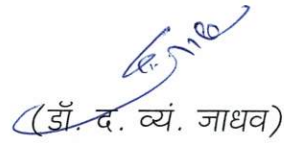 (डॉ. द. व्यं. जाधव)